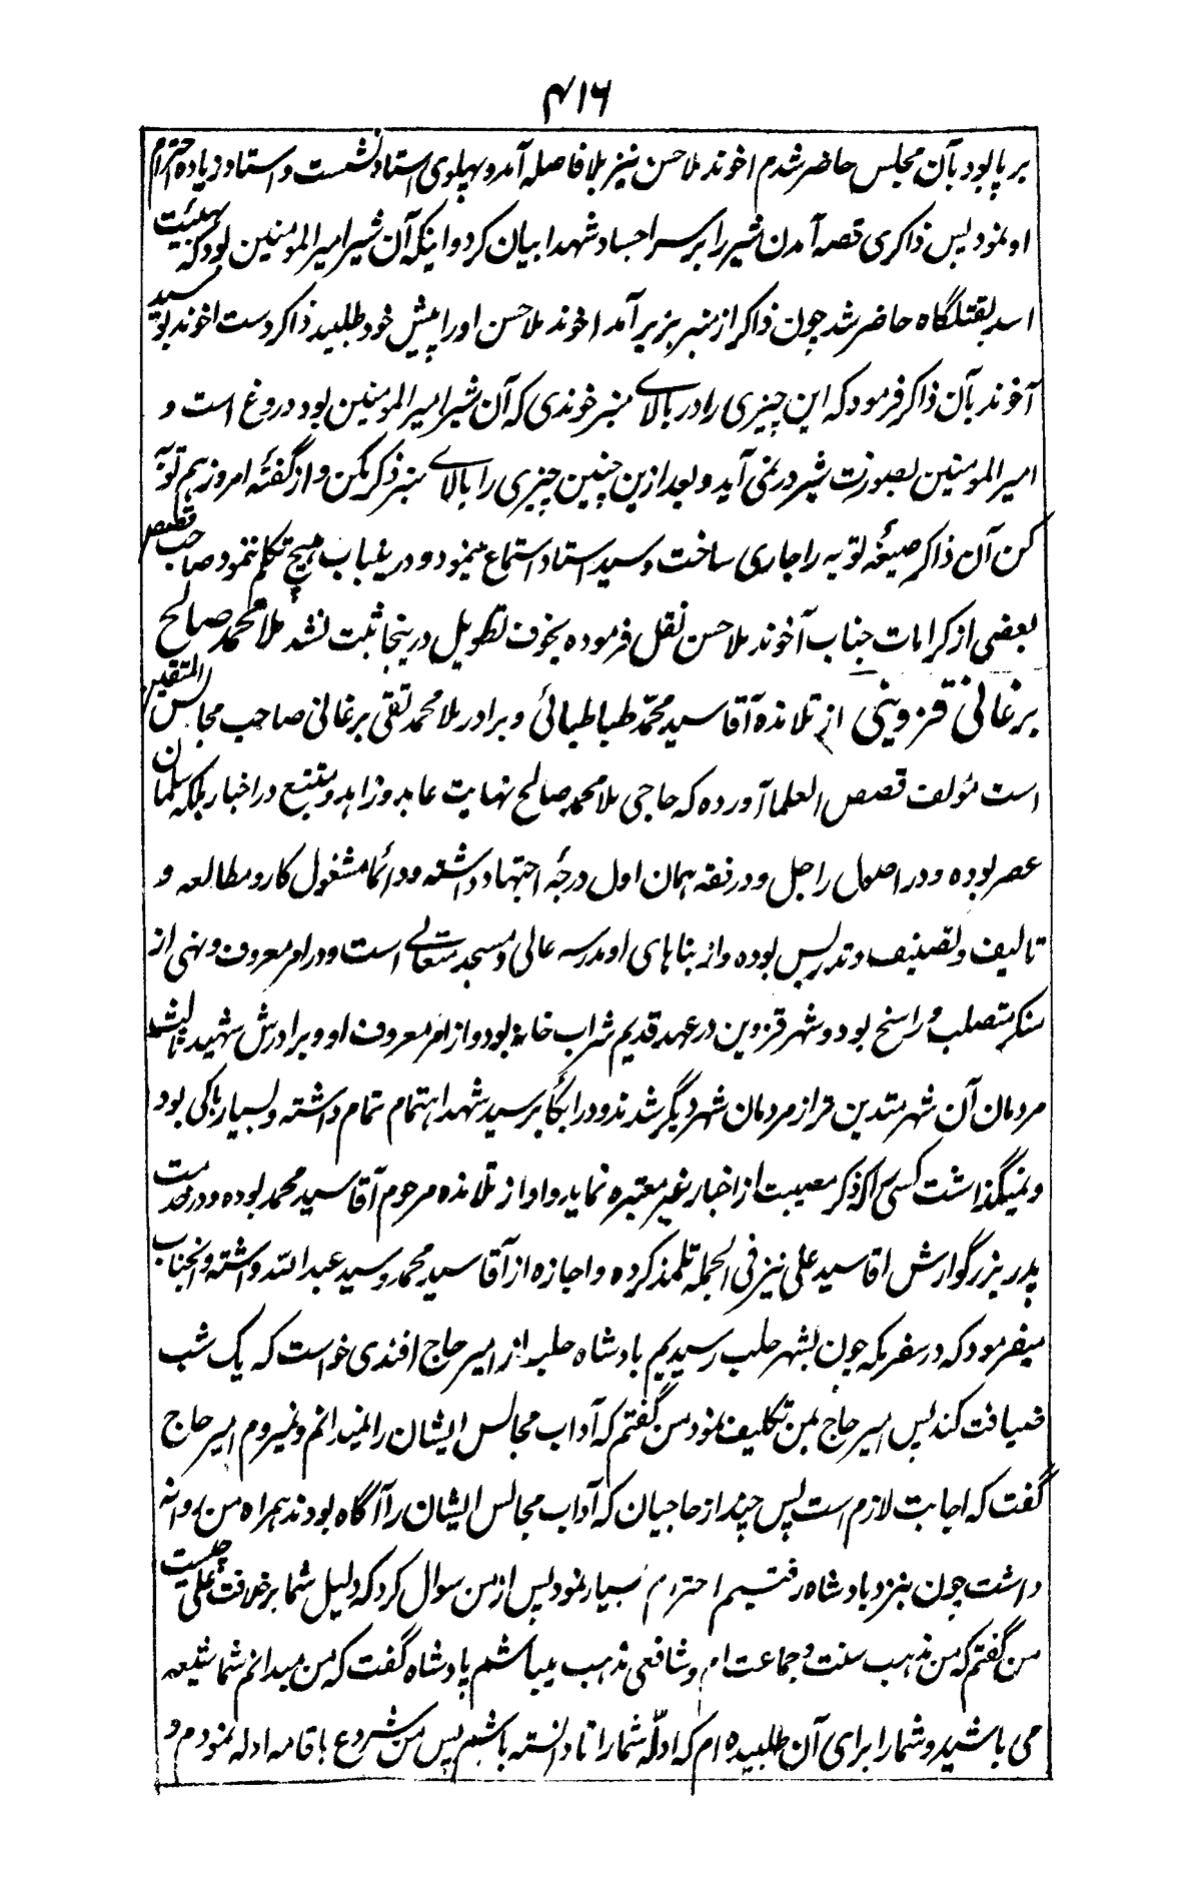 ۴۱۶
بر پا بود بآن مجلس حاضر شدم اخوند ملا حسن نیز بلا فاصله آمد و پهلوی استاد نشست و استاد زیاده احترام
او نمود پس ذاکری قصه آمدن شیر را بر سر اجساد شهدا بیان کرد و اینکه آن شیر امیر المومنین بود که بهیئت
اسد بقتلگاه حاضر شد چون ذاکر از منبر بزیر آمد اخوند ملا حسن او را پیش خود طلبید ذاکر دست اخوند بوسید
آخوند بآن ذاکر فرمود که این چیزی را در بالاے منبر خوندی که آن شیر امیر المومنین بود دروغ است و
امیر المومنین بصورت شیر در نمی آید و بعد ازین چنین چیزی را بالاے منبر ذکر مکن و از گفتۀ امروز هم توبه
کن آن ذاکر صیغه توبه را جاری ساخت و سید استاد استماع مینمود و در ینباب هیچ تکلم ننمود صاحب قصص
بعضی از کرامات جناب آخوند ملا حسن نقل فرموده بخوف تطویل درینجا ثبت نشد ملا محمد صالح
برغانی قزوینی از تلامذه آقا سید محمّد طباطبائی و برادر ملا محمد تقی برغانی صاحب مجالس المتقین
است مؤلف قصص العلما آورده که حاجی ملا محمد صالح نهایت عابد و زاهد و متتبع در اخبار بلکه سلمان
عصر بوده و در اصول راجل و در فقه همان اول درجۀ اجتهاد داشته و دائما مشغول کار و مطالعه و
تالیف و تصنیف و تدریس بوده و از بناهای او مدرسه عالی و مسجد متعالے است و در امر معروف و نهی از
منکر متصلب و راسخ بود و شهر قزوین در عهد قدیم شراب خانه بود و از امر معروف او و برادرش شهید ثالث
مردمان آن شهر متدین تر از مردمان شهر دیگر شدند و در ابکا بر سید شهدا اهتمام تمام داشته و بسیار باکی بود
و نمیگذاشت کسی را که ذکر مصیبت از اخبار غیر معتبره نماید و او از تلامذه مرحوم آقا سید محمد بوده و در خدمت
پدر بزرگوارش اقا سید علی نیز فی الجمله تلمذ کرده و اجازه از آقا سید محمد و سید عبد اللّه داشته و انجناب
میفرمود که در سفر مکه چون بشهر حلب رسیدیم بادشاه حلب از امیر حاج افندی خواست که یک شب
ضیافت کند پس امیر حاج بمن تکلیف نمود من گفتم که آداب مجالس ایشان را نمیدانم و نمیروم امیر حاج
گفت که اجابت لازم است پس چند از حاجیان که آداب مجالس ایشان را آگاه بودند همراه من روانه
داشت چون بنزد بادشاه رفتیم احترام بسیار نمود پس از من سوال کرد که دلیل شما بر خلافت علی چیست
من گفتم که من مذهب سنت و جماعت ام و شافعی مذهب میباشم بادشاه گفت که من میدانم شما شیعه
می باشید و شما را برای آن طلبیده ام که ادلّه شما را تا دانسته باشم پس من شروع باقامه ادله نمودم و